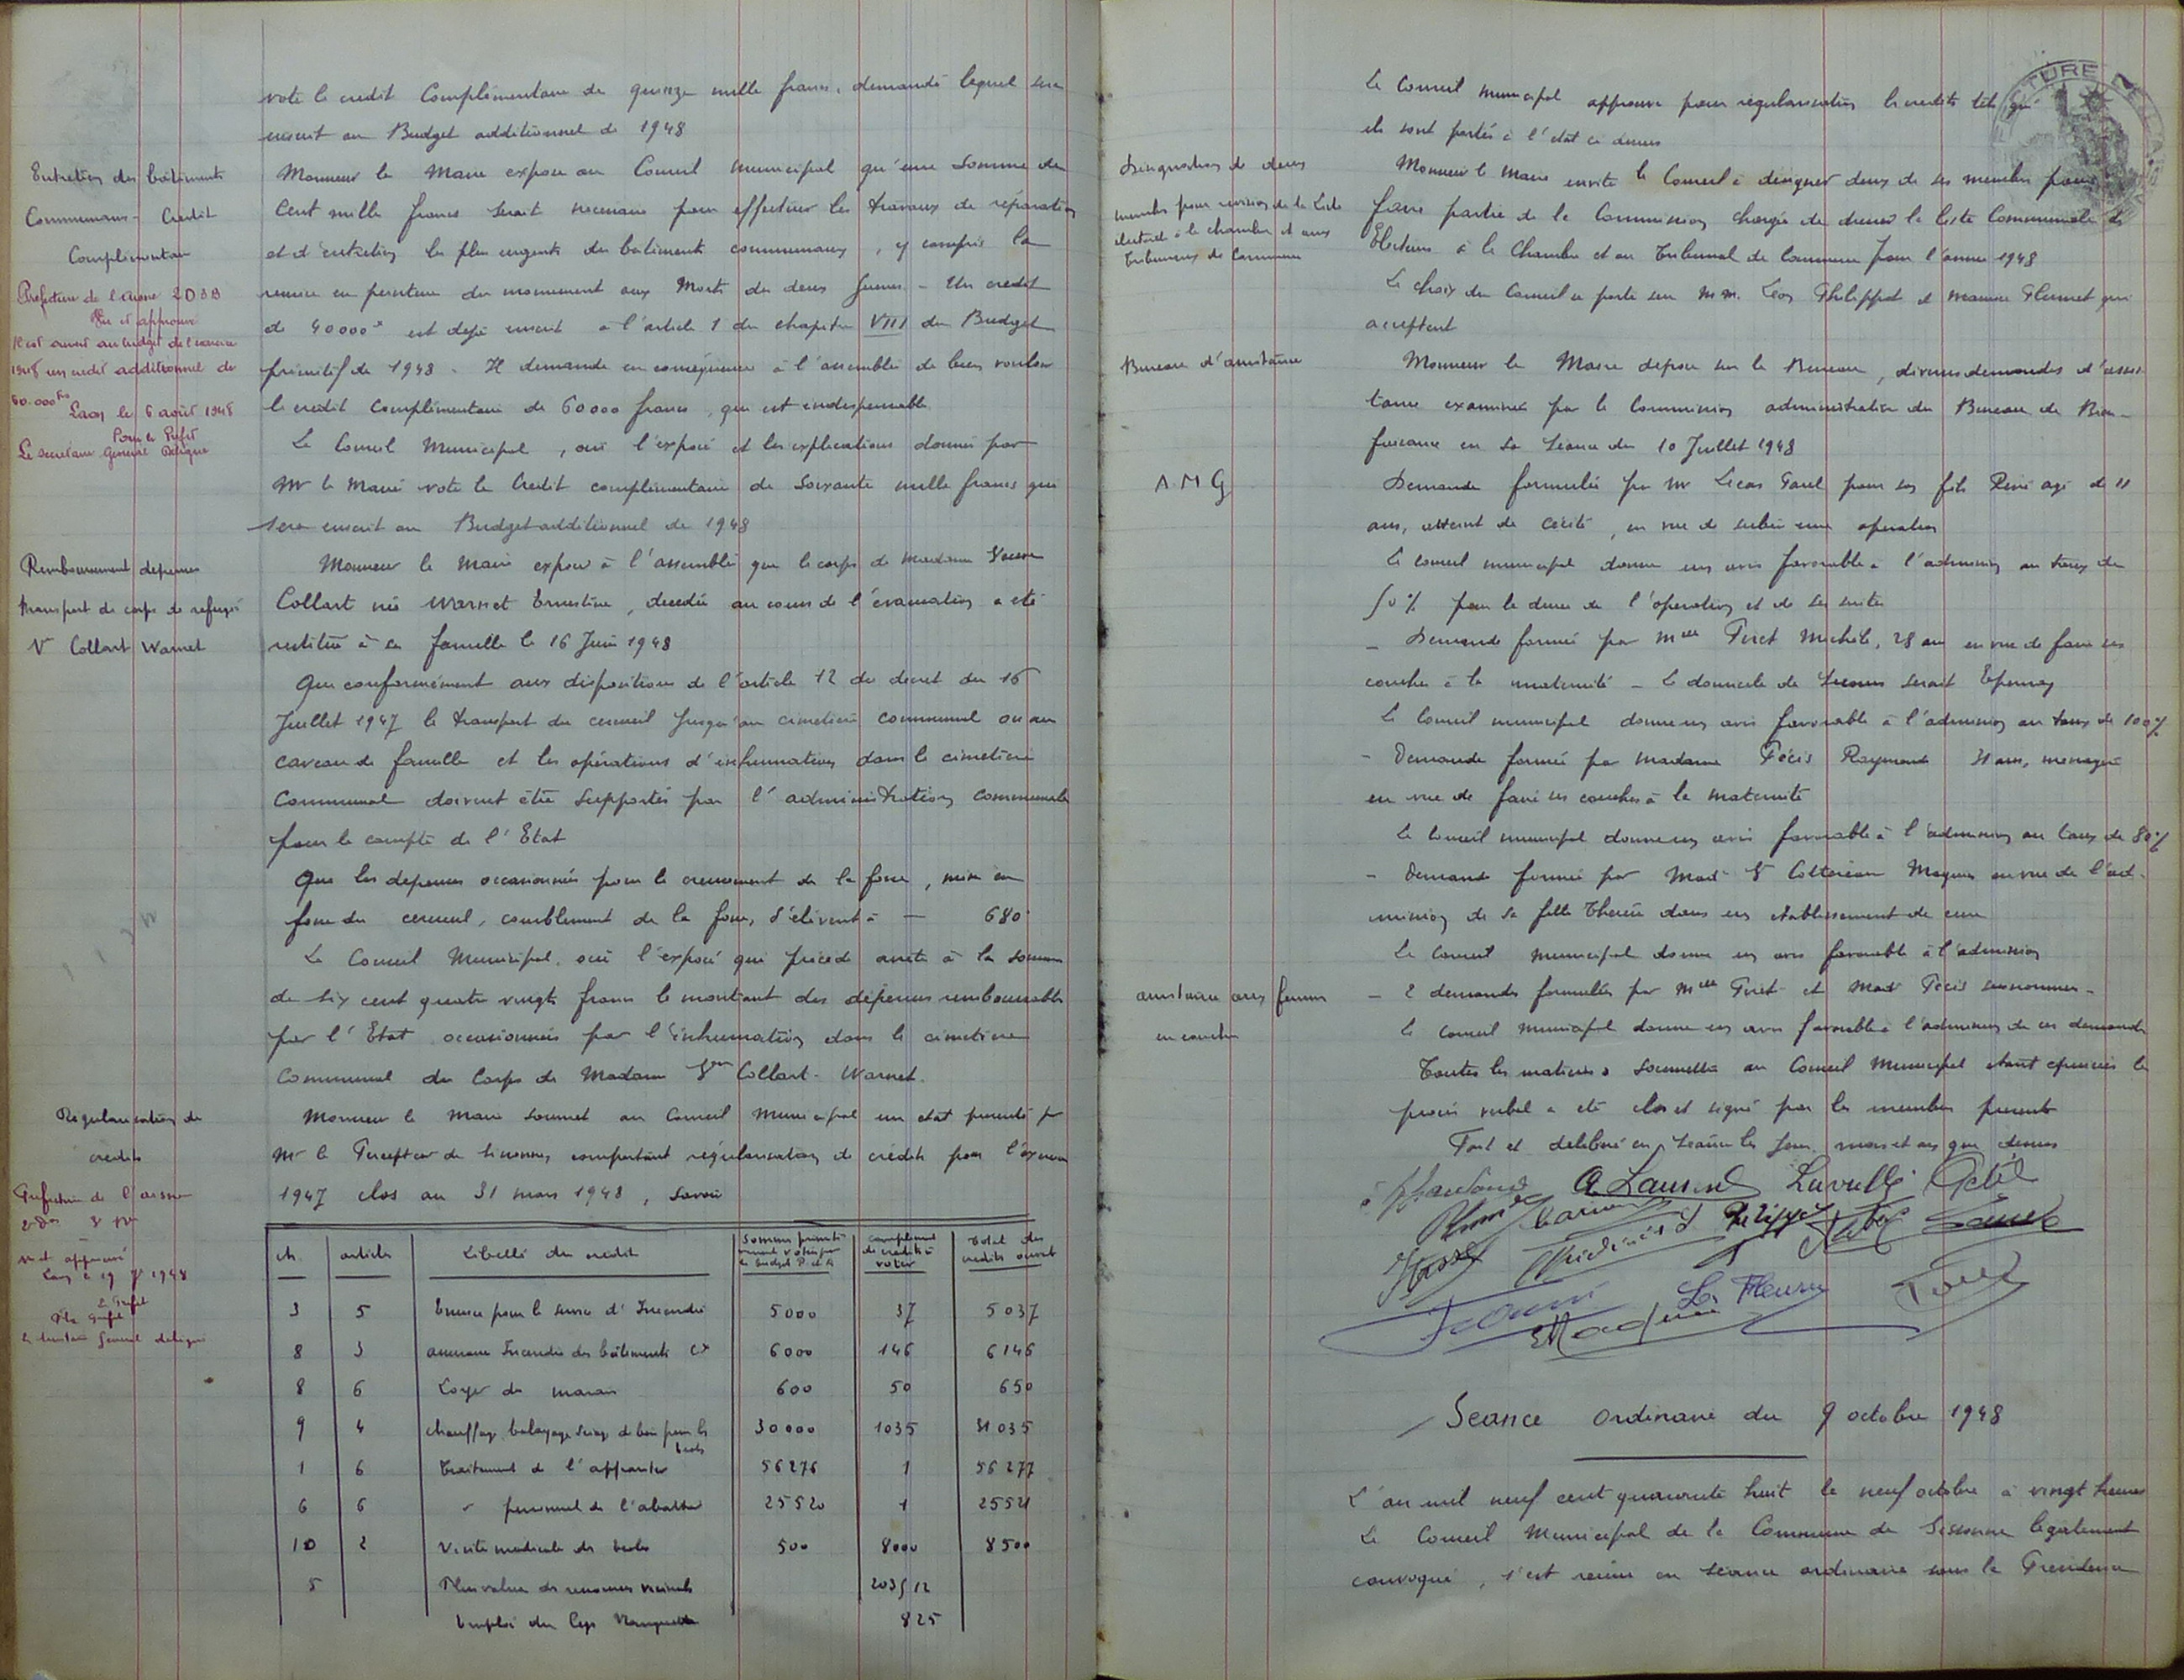 vote le credit Complémentaire de quinze mille francs, demandé lequel sera
inscrit au Budget additionnel de 1948
Entretien des bâtiments
Communaux - Credit
Complémentaire
Monsieur le Maire expose au Conseil municipal qu'une Somme de
Cent mille francs serait necessaire pour effectuer les travaux de réparation
et d'entretien les plus urgents des batiments communaux, y compris la
remise en peinture du monument aux Morts des deux Guerres - Un credit
de 40000 est dejà inscrit à l'article 1 du chapitre VIII du Budget
primitif de 1948. Il demande en conséquence à l'assemblée de bien vouloir
le credit complémentaire de 60000 francs, qui est indispensable
Préfecture de l'Aisne 2D3B
Vu et approuvé
Il est ouvert au budget de l'exercice
1948 un credit additionnel de
60.000 frs
Laon le 6 août 1948
Pour le Préfet
Le Secretaire General Délégué
Le Conseil Municipal, oui l'exposé et les explications données par
Mr le Maire vote le Credit complémentaire de soixante mille francs qui
sera inscrit au Budget additionnel de 1948
Remboursement depenses
transport de corps de refugié
V Collart Warnet
Monsieur le Maire expose à l'assemblée que le corps de Madame Veuve
Collart née Warnet Ernestine, decedée au cours de l'évacuation a été
restitué à sa famille le 16 Juin 1948
Que conformément aux dispositions de l'article 12 du decret du 16
Juillet 1947 le transport du cercueil jusqu'au cimetière communal ou au
caveau de famille et les opérations d'inhumation dans le cimetière
Communal doivent être supportés par l'administration communale
pour le compte de l'Etat
Que les depenses occasionnées pour le creusement de la fosse, mise en
fosse du cercueil, comblement de la fosse, s'élèvent à - 680
Le Conseil Municipal, oui l'exposé qui précède arrete à la somme
de six cent quatre vingts francs le montant des dépenses remboursables
par l'Etat occasionnées par l'inhumation dans le cimetière
Communal du Corps de Madame Vve Collart-Warnet.
Regularisation de
credits
Monsieur le Maire soumet au Conseil Municipal un etat presenté par
Mr le Percepteur de Sissonne, comportant régularisation de crédits pour l'exercice
1947 clos au 31 mars 1948, savoir
Prefecture de l'Aisne
vu et approuvé
Laon le 19 1948
Le Préfet
le secretaire General delegué
ch. articles Libellé du credit Sommes primitivement votées par le budget P et A complément de crédit à voter Total des credits ouverts
3 5 Essence pour le service d'Incendie 5000 37 5037
8 3 assurance Incendie des bâtiments Cx 6000 146 6146
8 6 Loyer du marais 600 50 650
9 4 chauffage balayage sciage de bois pour les ecoles 30000 1035 31035
1 6 Traitement de l'appariteur 56276 1 56277
6 6 " personnel de l'abattoir 25520 1 25521
10 2 Visite medicale des ecoles 500 8000 8500
5 Plus values des ressources vicinales 20512
Emploi du legs 825
Le Conseil municipal approuve pour regularisation les credits tels qu'
ils sont portés à l'état ci dessus
Designation de deux
membres pour revision de la Liste
electorale à la chambre et aux
Tribunaux de Commerce
Monsieur le Maire invite le Conseil à designer deux de ses membres pour
faire partie de la Commission chargée de dresser la liste Communale des
Electeurs à la Chambre et au Tribunal de Commerce pour l'année 1948
Le choix du Conseil se porte sur MM. Léon Philippot et Maurice Plumet qui
acceptent
Bureau d'assistance
Monsieur le Maire depose sur le Bureau, diverses demandes d'assis
tance examinées par la Commission administrative du Bureau de Bien-
faisance en sa séance du 10 Juillet 1948
A.M.G
Demande formulée par Mr Lucas Parel pour son fils René agé de 11
ans, atteint de cécité, en vue de subir une operation
Le conseil municipal donne un avis favorable à l'admission au taux de
50% pour la duree de l'operation et de ses suites
- Demande formée par Melle Piret Michèle, 28 ans en vue de faire ses
couches à la maternité - le domicile de secours serait Epernay
Le Conseil municipal donne un avis favorable à l'admission au taux de 100%
- Demande formée par Madame Pécis Raymonde 31 ans, menagère
en vue de faire ses couches à la maternité
Le Conseil municipal donne un avis favorable à l'admission au taux de 80%
- Demande formée par Mad Vve Cottereau Magnus en vue de l'ad-
mission de sa fille Thérèse dans un etablissement de cure
Le Conseil municipal donne un avis favorable à l'admission
assistance aux femmes
en couches
- 2 demandes formulées par Melle Piret et Mad Pecis susnommées -
le Conseil Municipal donne un avis favorable à l'admission de ces demandes
Toutes les matieres soumises au Conseil Municipal étant epuisées le
procès verbal a été clos et signé par les membres presents
Fait et deliberé en séance les jour, mois et an que dessus
A Laurent
Le Fleury
Seance ordinaire du 9 octobre 1948
L'an mil neuf cent quarante huit le neuf octobre à vingt heures
Le Conseil Municipal de la Commune de Sissonne légalement
convoqué, s'est réuni en séance ordinaire sous la Presidence